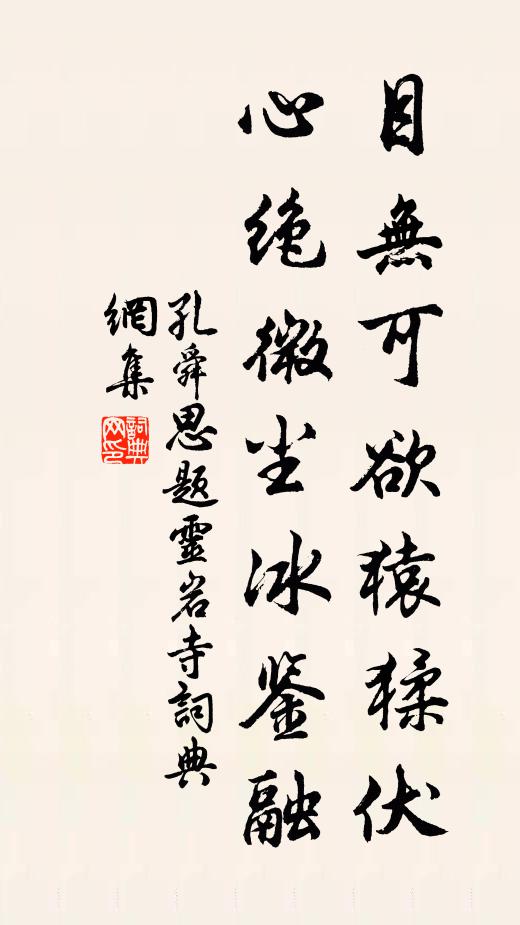 目無可欲猿猱伏
心绝微尘冰鉴融
孔舜思題靈岩寺詞典
網集
詞典
网印